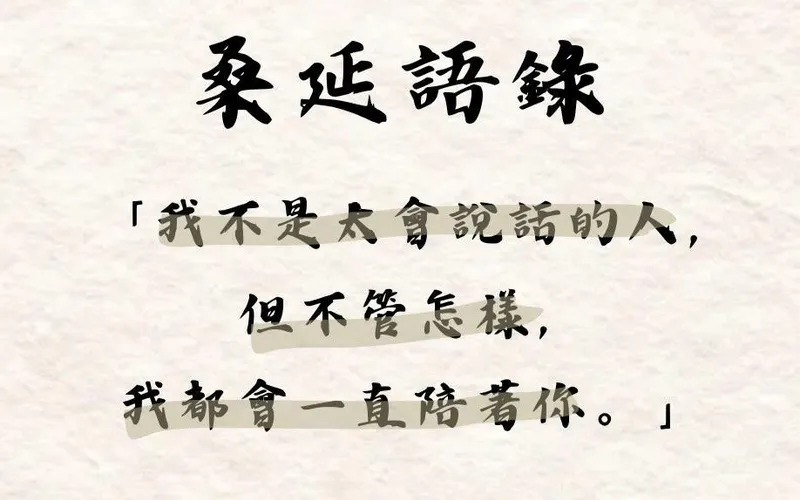 桑延語錄
「我不是太會說話的人,
但不管怎樣,
我都會一直陪著你。」